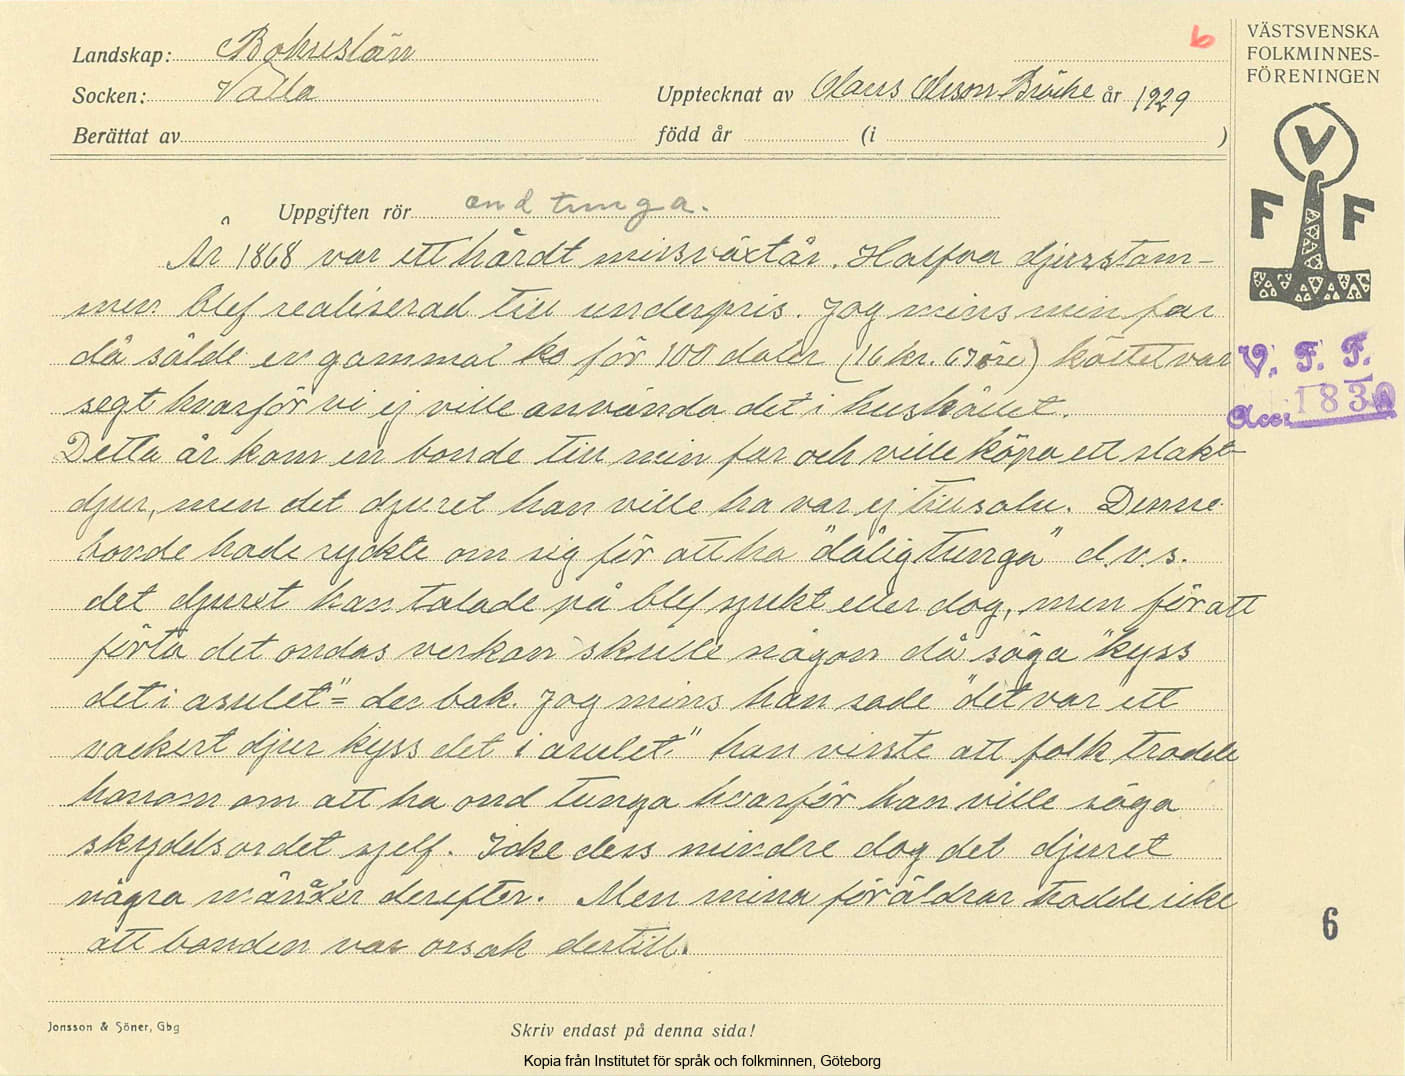 Landskap: Bohuslän
Socken: Valla
Upptecknat av Claus Olsson Bröcke år 1929
Berättat av född år (i )
6
VÄSTSVENSKA
FOLKMINNES-
FÖRENINGEN
V
F F
V. F. F.
Acc: 1830
Uppgiften rör ond tunga.
År 1868 var ett hårdt missväxtår. Halfva djurstam-
men blef realiserad till underpris. Jag mins min far
då sålde en gammal ko för 100 daler (16 kr. 67 öre) köttet var
segt hvarför vi ej ville använda det i hushållet.
Detta år kom en bonde till min far och ville köpa ett slakt-
djur, men det djuret han ville ha var ej till salu. Denne
bonde hade ryckte om sig för att ha "dålig tunga" d.v.s.
det djuret han talade på blef sjukt eller dog, men för att
förta det ondas verkan skulle någon då säga "kyss
det i asulet" = der bak. Jag mins han sade "det var ett
vackert djur kyss det i asulet." han visste att folk trodde
honom om att ha ond tunga hvarför han ville säga
skyddsordet sjelf. Icke dess mindre dog det djuret
några månader derefter. Men mina föräldrar trodde icke
att bonden var orsak dertill.
6
Jonsson & Söner, Gbg
Skriv endast på denna sida!
Kopia från Institutet för språk och folkminnen, Göteborg